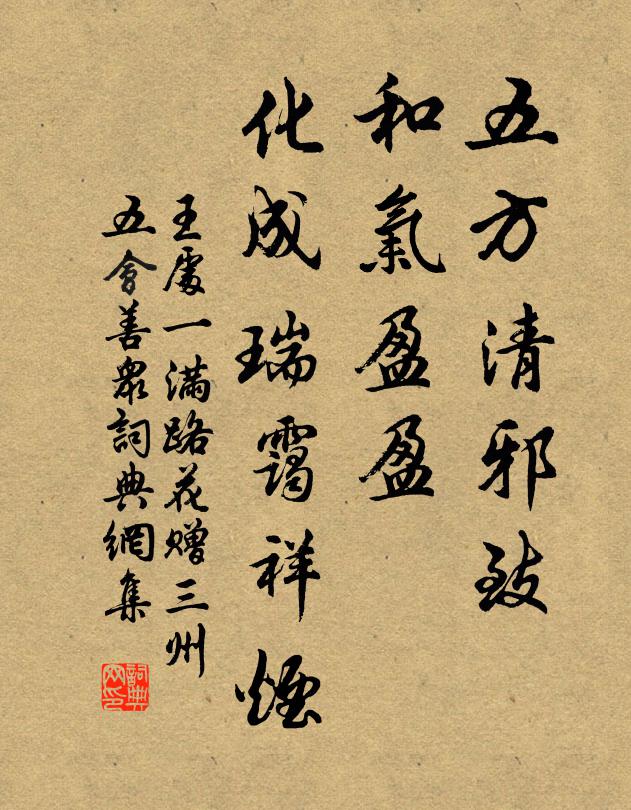 五方清邪致
和氣盈盈
化成瑞靄祥煙
王處一滿路花贈三州
五會善眾詞典網集
詞典網印